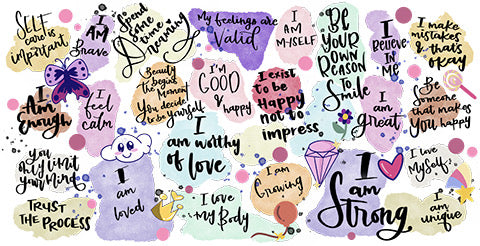 SELF
care is
important
I
AM
Brave
Spend
Some
time
dreaming
My feelings are
Valid
I
AM
MYSELF
BE
YOUR
OWN
REASON
TO
Smile
I
BELIEVE
IN ME
I make
mistakes
& that's
okay
I
Am
Enough
I
feel
calm
Beauty
begins
the
Moment
You decide
to be yourself
I'M
GOOD
& happy
I EXIST
TO BE
Happy
not to
impress
I
am
great
Be
Someone
that makes
YOU happy
You
only limit
your mind
I
am worthy
of love
I
am
loved
I am
Growing
I
am
Strong
I love
MySelf
TRUST
THE PROCESS
I love
My Body
I am
unique